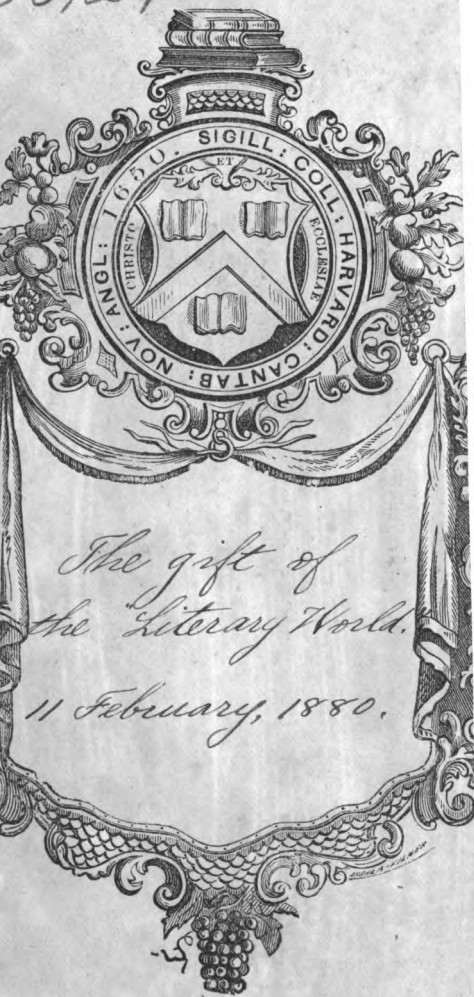 SIGILL: COLL: HARVARD: CANTAB: NOV: ANGL: 1650.
ET
CHRISTO
ECCLESIAE
The gift of
the "Literary World."
11 February, 1880.